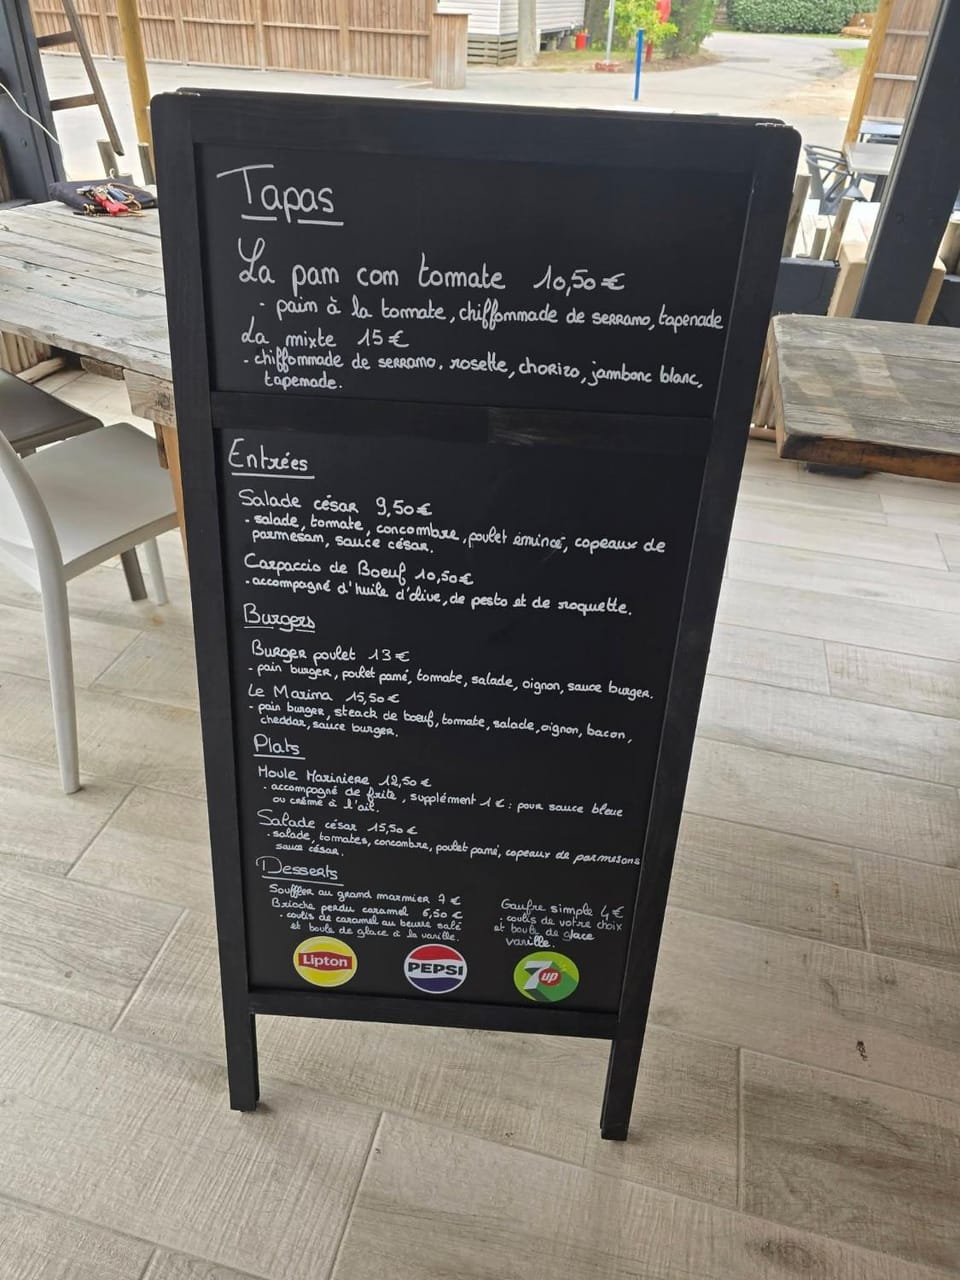 Tapas
La pam com tomate 10,50€
- pain à la tomate, chiffonnade de serrano, tapenade
La mixte 15€
- chiffonnade de serrano, rosette, chorizo, jambonc blanc,
tapenade.
Entrées
Salade césar 9,50€
- salade, tomate, concombre, poulet émincé, copeaux de
parmesan, sauce césar.
Carpaccio de Boeuf 10,50€
- accompagné d'huile d'olive, de pesto et de roquette.
Burgers
Burger poulet 13€
- pain burger, poulet pané, tomate, salade, oignon, sauce burger.
Le Marina 15,50€
- pain burger, steack de boeuf, tomate, salade, oignon, bacon,
cheddar, sauce burger.
Plats
Moule Mariniere 12,50€
- accompagné de frite, supplément 1€ : pour sauce bleue
ou crème à l'ail.
Salade césar 15,50€
- salade, tomates, concombre, poulet pané, copeaux de parmesans
sauce césar.
Desserts
Souffler au grand marnier 7€
Brioche perdu caramel 6,50€
- coulis de caramel au beurre salé
et boule de glace à la vanille.
Gaufre simple 4€
- coulis de votre choix
et boule de glace
vanille.
Lipton
PEPSI
7up